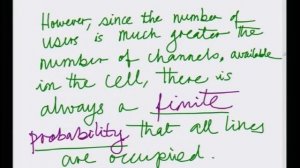 However, since the number of
users is much greater the
number of channels, available
in the cell, there is
always a finite
probability that all lines
are occupied.